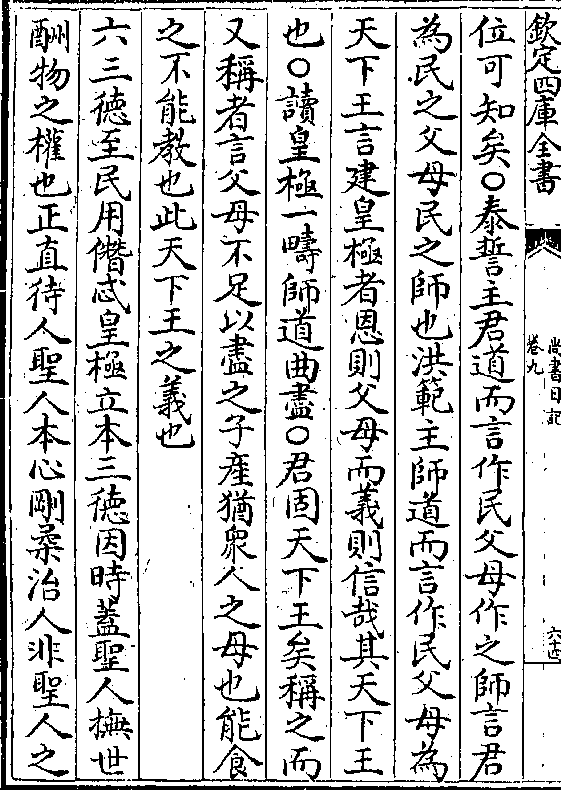 欽定四庫全書
尚書日記
卷九
六十四
位可知矣○泰誓主君道而言作民父母作之師言君
為民之父母民之師也洪範主師道而言作民父母為
天下王言建皇極者恩則父母而義則信哉其天下王
也○讀皇極一疇師道曲盡○君固天下王矣稱之而
又稱者言父母不足以盡之子產猶衆人之母也能食
之不能教也此天下王之義也
六三德至民用僭忒皇極立本三德因時蓋聖人撫世
酬物之權也正直待人聖人本心剛柔治人非聖人之